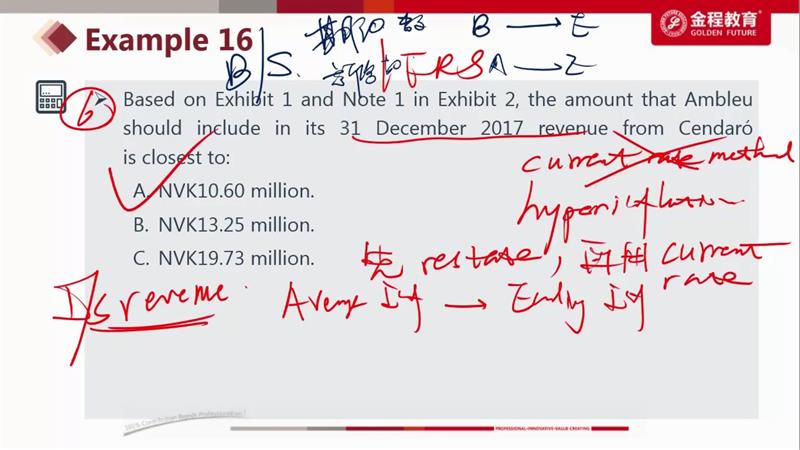 Example 16
金程教育
GOLDEN FUTURE
B → E
B/S.
IFRS A → E
6
Based on Exhibit 1 and Note 1 in Exhibit 2, the amount that Ambleu
should include in its 31 December 2017 revenue from Cendaró
is closest to:
A. NVK10.60 million.
B. NVK13.25 million.
C. NVK19.73 million.
current rate method
先 restate, 再用 current
rate
I/S revenue.
→
PROFESSIONAL·INNOVATIVE·VALUE CREATING